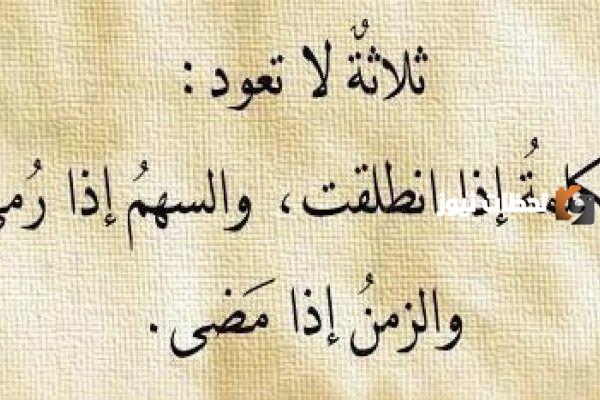 ثلاثةٌ لا تعود :
كلمةُ إذا انطلقت، والسهمُ إذا رُمي
لحظات نيوز
والزمنُ إذا مَضى.